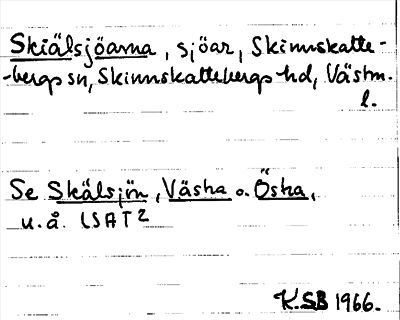 Skiälsjöarna, sjöar, Skinnskatte-
-bergs sn, Skinnskattebergs hd, Västm.
l.
Se Skälsjön, Västra o. Östra,
u.å. LSAT 2
K.SB 1966.